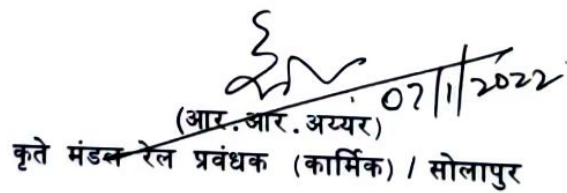 07/1/2022
(आर.आर.अय्यर)
कृते मंडल रेल प्रवंधक (कार्मिक) / सोलापुर